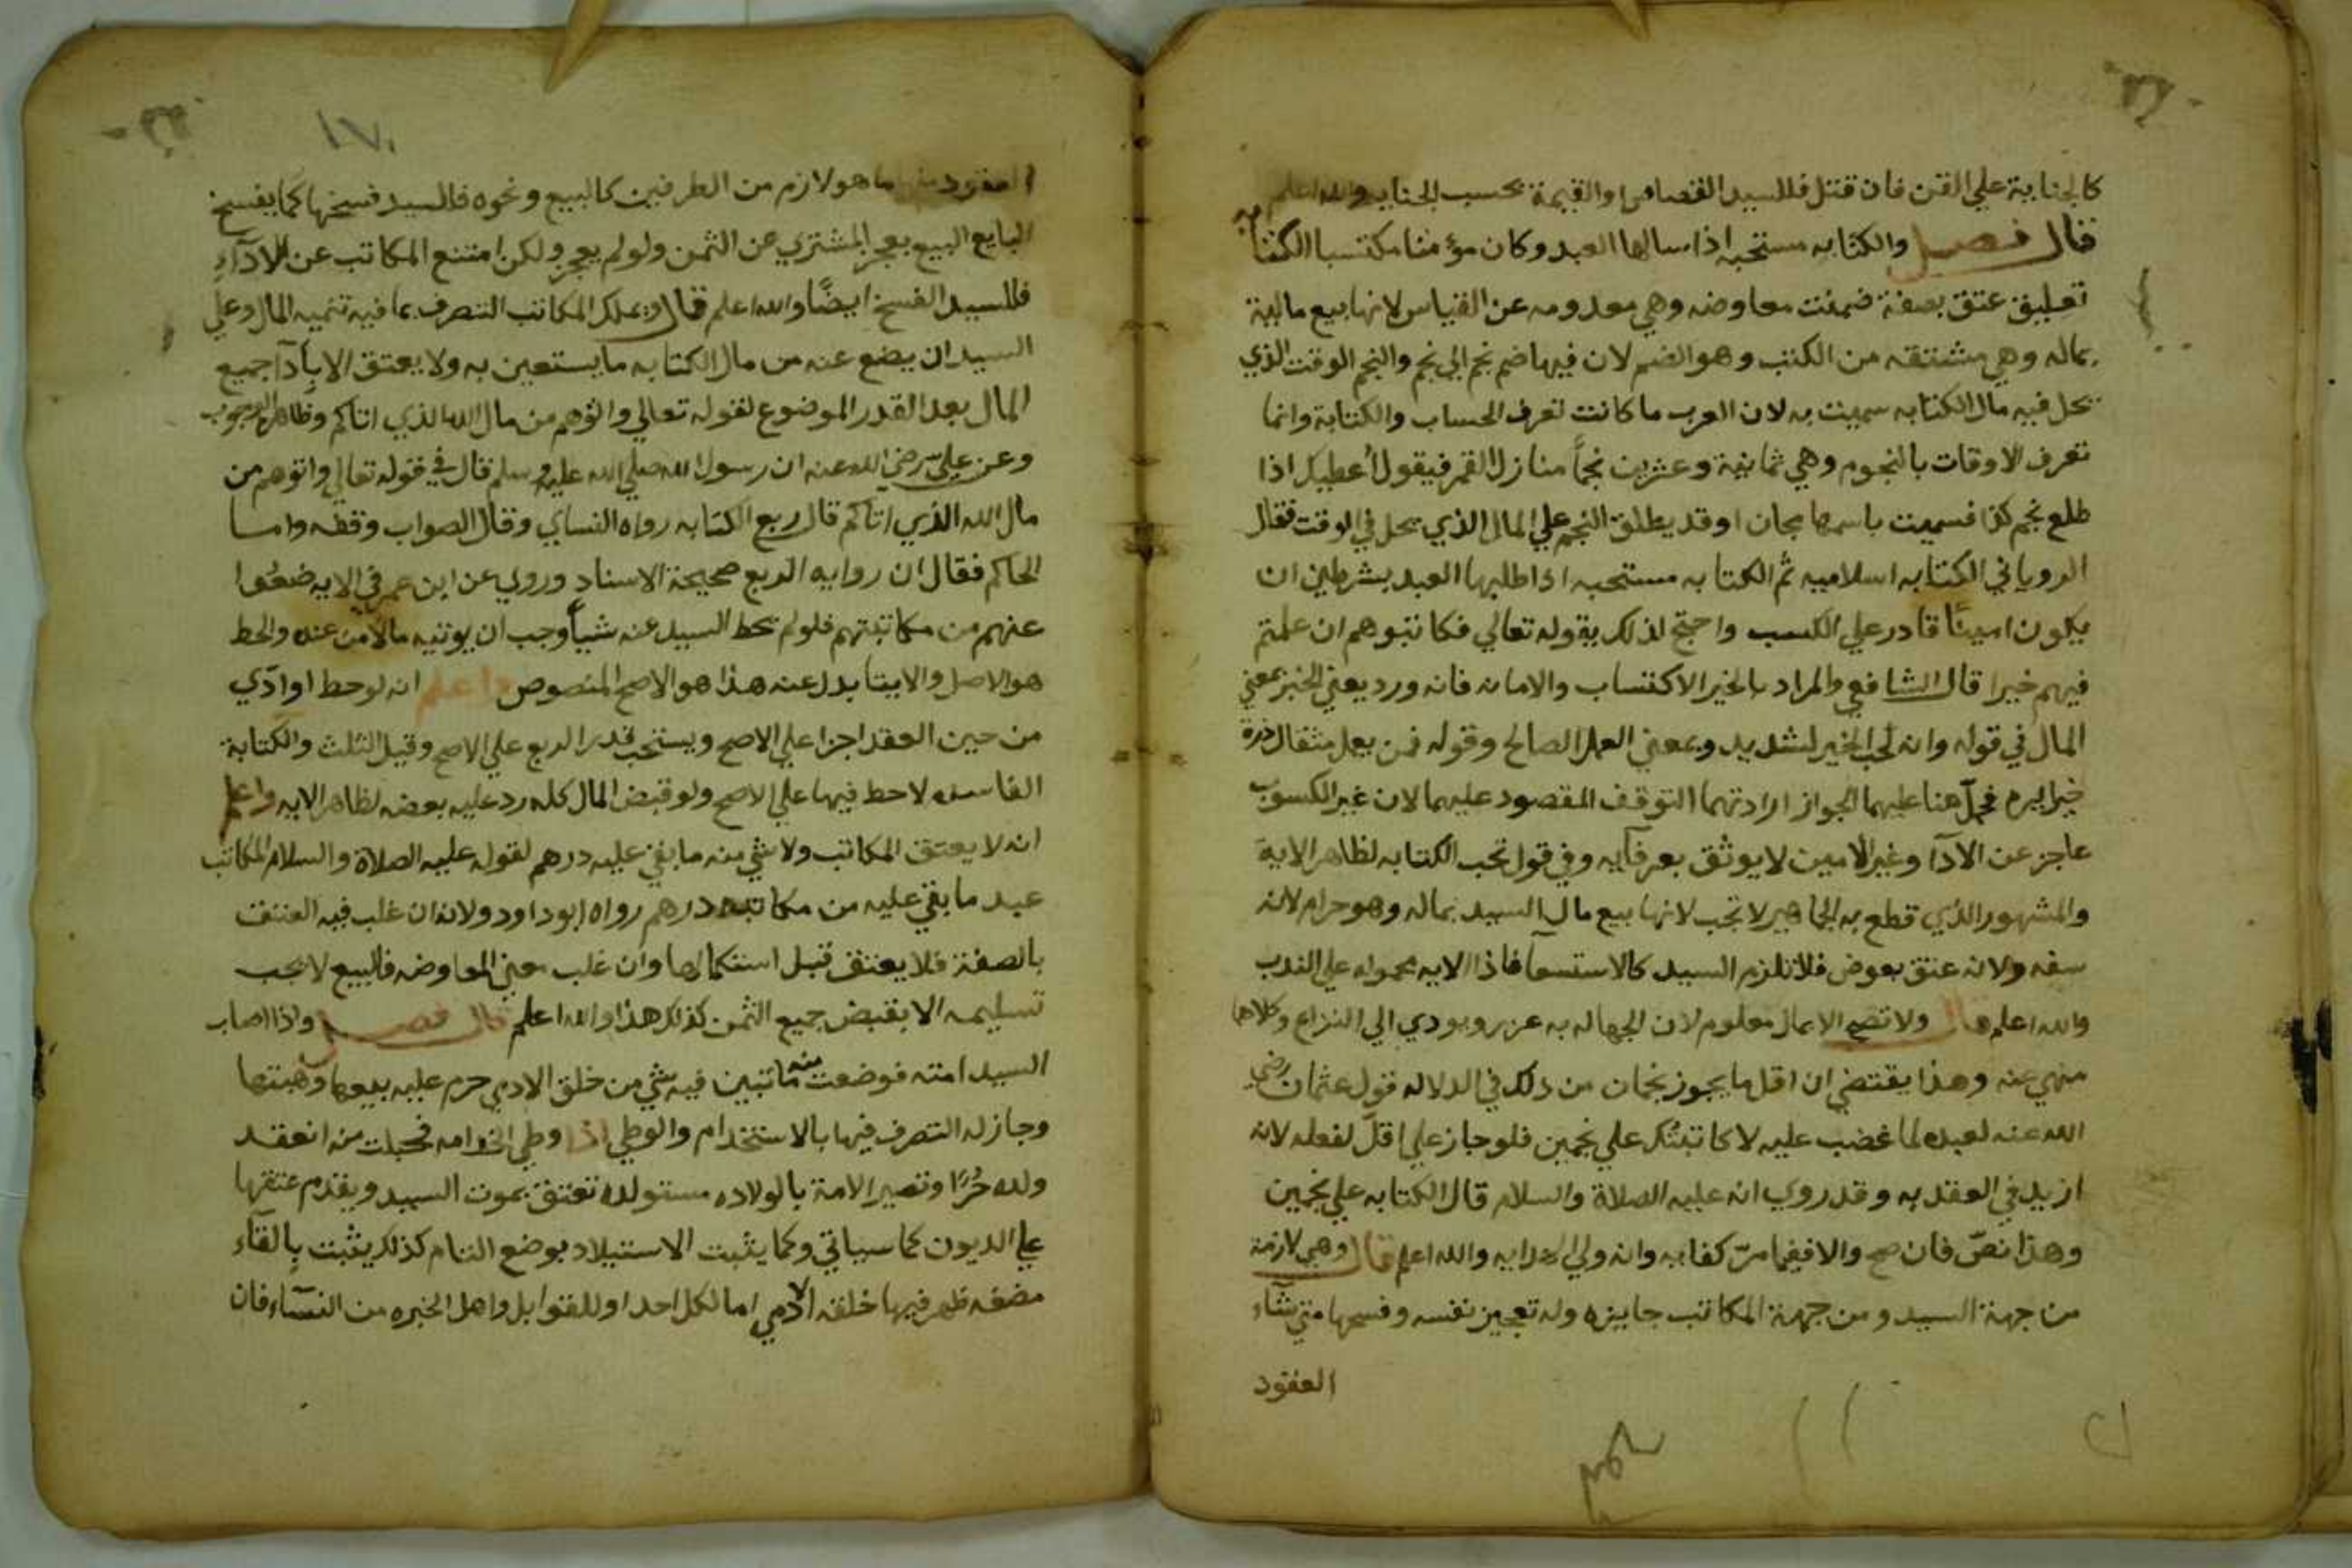 كالجناية علي القن فان قتل فللسيد القصاص او القيمة بحسب الجنايه والله اعلم
قال فصل والكتابه مستحبه اذا سالها العبد وكان مؤمنا مكتسبا الكتابه
تعليق عتق بصفة ضمنت معاوضه وهي معدومه عن القياس لانها بيع ماليه
بماله وهي مشتقه من الكتب وهو الضم لان فيها ضم نجم الي نجم والنجم الوقت الذي
يحل فيه مال الكتابه سميت به لان العرب ما كانت تعرف الحساب والكتابة وانما
تعرف الاوقات بالنجوم وهي ثمانية وعشرين نجمًا منازل القمر فيقول أعطيك اذا
طلع نجم كذا فسميت باسمها مجازا وقد يطلق النجم علي المال الذي يحل في الوقت فقال
الروياني الكتابه اسلاميه ثم الكتابه مستحبه اذا طلبها العبد بشرطين ان
يكون امينًا قادر علي الكسب واحتج لذلك بقوله تعالي فكاتبوهم ان علمتم
فيهم خيرا قال الشافعي والمراد بالخير الاكتساب والامانه فانه ورد يعني الخير بمعني
المال في قوله وانه لحب الخير لشديد وبمعني العمل الصالح وقوله فمن يعمل مثقال ذرة
خيرا يره فحمل هنا عليهما لجواز ارادتهما التوقف المقصود عليهما لان غير الكسوب
عاجز عن الادآ وغير الامين لا يوثق بعرفآيه وفي قول تجب الكتابه لظاهر الاية
والمشهور الذي قطع به الجماهير لا تجب لانها بيع مال السيد بماله وهو حرام لانه
سفه ولانه عتق بعوض فلا تلزم السيد كالاستسعآ فاذا الايه محموله علي الندب
والله اعلم قال ولا تصح الا بمال معلوم لان الجهاله به غرر ويودي الي النزاع وكلاهما
منهي عنه وهذا يقتضي ان اقل ما يجوز نجمان من ذلك في الدلاله قول عثمان رضي
الله عنه لعبده لما غضب عليه لاكاتبنك علي نجمين فلو جاز علي اقل لفعله لانه
ازيد في العقد به وقد روي انه عليه الصلاة والسلام قال الكتابه علي نجمين
وهذا نصّ فان صح والا فيما مرّ كفايه وانه ولي الهدايه والله اعلم قال وهي لازمة
من جهة السيد ومن جهة المكاتب جايزه وله تعجيز نفسه وفسخها متي شآء
العقود
١٧٠
العقود منها ما هو لازم من الطرفين كالبيع ونحوه فالسيد فسخها كما يفسخ
البايع البيع بعجز المشتري عن الثمن ولو لم يعجز ولكن امتنع المكاتب عن الادآء
فللسيد الفسخ ايضًا والله اعلم قال ويملك المكاتب التصرف بما فيه تنميه المال وعلي
السيد ان يضع عنه من مال الكتابه ما يستعين به ولا يعتق الا بأدآ جميع
المال بعد القدر الموضوع لقوله تعالي واتوهم من مال الله الذي اتاكم وظاهره الوجوب
وعن عليّ رضي الله عنه ان رسول الله صلي الله عليه وسلم قال في قوله تعالي واتوهم من
مال الله الذي اتاكم قال ربع الكتابه رواه النساي وقال الصواب وقفه واما
الحاكم فقال ان روايه الربع صحيحة الاسناد وروي عن ابن عمر في الايه ضعُوا
عنهم من مكاتبتهم فلو لم يحط السيد عنه شيأ وجب ان يوتيه مالا من عنده والحط
هو الاصل والايتا بدل عنه هذا هو الاصح المنصوص واعلم انه لو حط او ادّي
من حين العقد اجزا علي الاصح ويستحب قدر الربع علي الاصح وقيل الثلث والكتابة
الفاسده لا حط فيها علي الاصح ولو قبض المال كله رد عليه بعضه لظاهر الايه واعلم
انه لا يعتق المكاتب ولا شي منه ما بقي عليه درهم لقوله عليه الصلاة والسلام المكاتب
عبد ما بقي عليه من مكاتبته درهم رواه ابو داود ولانه ان غلب فيه العتق
بالصفة فلا يعتق قبل استكمالها وان غلب معني المعاوضه فالبيع لا يجب
تسليمه الا بقبض جميع الثمن كذلك هذا والله اعلم قال فصل واذا اصاب
السيد امته فوضعت منه ما تبين فيه شي من خلق الادمي حرم عليه بيعها وهبتها
وجاز له التصرف فيها بالاستخدام والوطي اذا وطي الحر امه فحبلت منه انعقد
ولده حُرًا وتصير الامة بالولاده مستولده تعتق بموت السيد ويقدم عتقها
علي الديون كما سياتي وكما يثبت الاستيلاد بوضع التام كذلك يثبت بإلقآء
مضغه ظهر فيها خلقه الادمي اما لكل احد او للقوابل واهل الخبره من النسآء فان